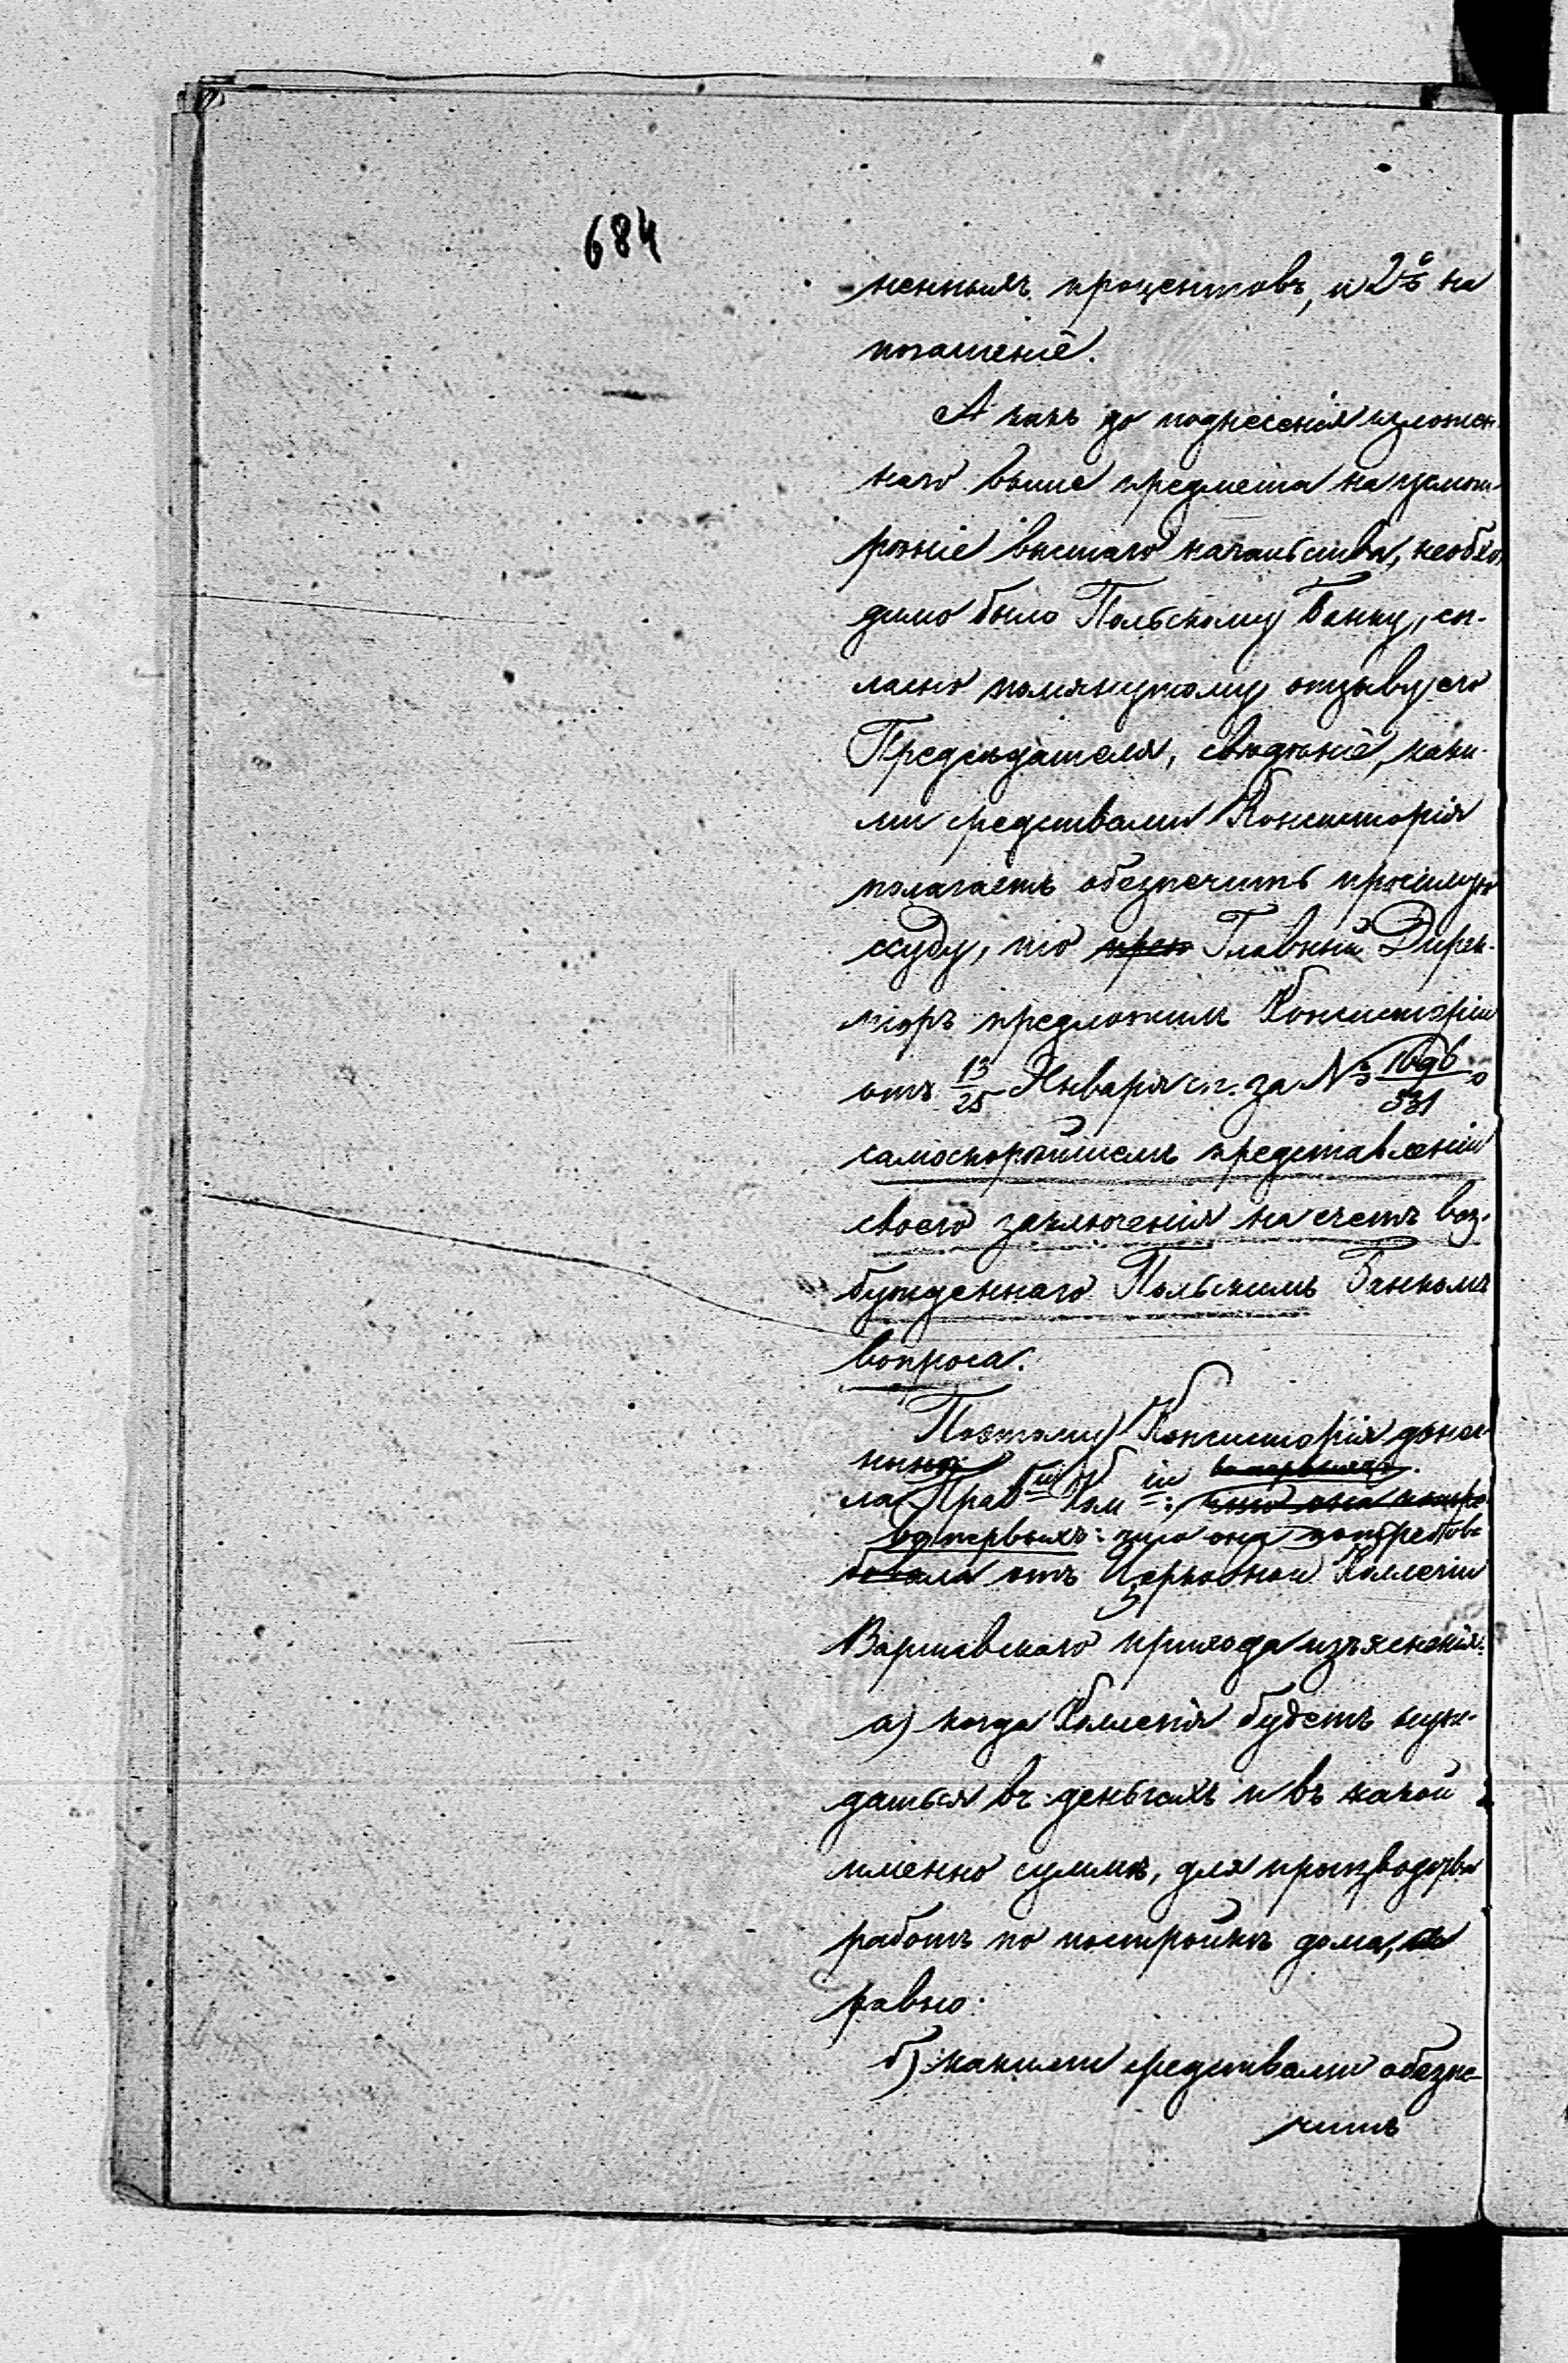 684
ненныхъ процентовъ, и 2% на
погашеніе.
А какъ до поднесенія изложен-
наго выше предмета на усмот-
рѣніе высшаго начальства, необхо-
димо было Польскому Банку, со-
гласно помянутому отзыву его
Предсѣдателя, свѣдѣніе, каки-
ми средствами Консисторія
полагаетъ обезпечить просимую
ссуду, то Главный Дирек-
торъ предложилъ Консисторіи
отъ 13/25 Января с.г. за № /331 о
самоскорѣйшемъ представленіи
своего заключенія на счетъ воз-
бужденнаго Польскимъ Банкомъ
вопроса.
Поэтому Консисторія донес-
нынѣ во первыхъ
ла Прав ой Ком іи: что она потре
во первыхъ: что она потребова
бовала отъ Церковной Коллегіи
Варшавскаго прихода изъясненія:
а) когда Коллегія будетъ нуж-
даться въ деньгахъ и въ какой
именно суммѣ, для производства
работъ по постройкѣ дома, а
равно:
б) какими средствами обезпе-
читъ